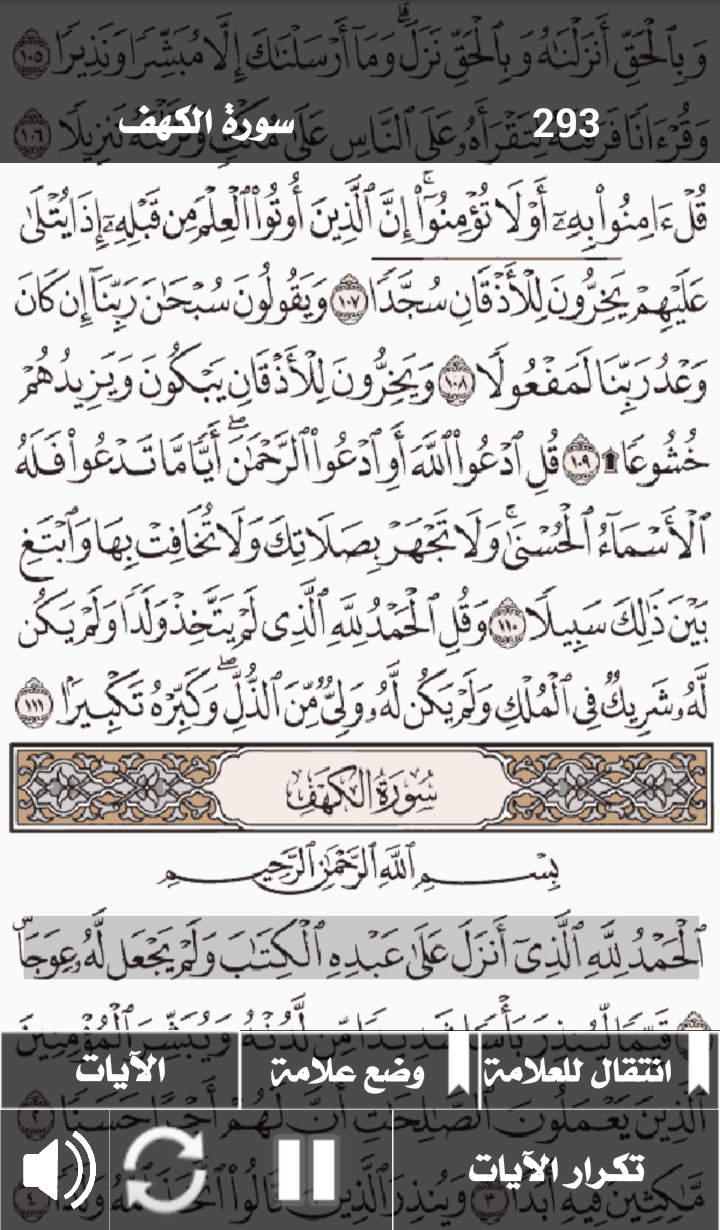 وَبِٱلْحَقِّ أَنزَلْنَٰهُ وَبِٱلْحَقِّ نَزَلَ ۗ وَمَآ أَرْسَلْنَٰكَ إِلَّا مُبَشِّرًا وَنَذِيرًا ١٠٥
سورة الكهف 293
وَقُرْءَانًا فَرَقْنَٰهُ لِتَقْرَأَهُۥ عَلَى ٱلنَّاسِ عَلَىٰ مُكْثٍ وَنَزَّلْنَٰهُ تَنزِيلًا ١٠٦
قُلْ ءَامِنُوا۟ بِهِۦٓ أَوْ لَا تُؤْمِنُوٓا۟ ۚ إِنَّ ٱلَّذِينَ أُوتُوا۟ ٱلْعِلْمَ مِن قَبْلِهِۦٓ إِذَا يُتْلَىٰ
عَلَيْهِمْ يَخِرُّونَ لِلْأَذْقَانِ سُجَّدًا ١٠٧ وَيَقُولُونَ سُبْحَٰنَ رَبِّنَآ إِن كَانَ
وَعْدُ رَبِّنَا لَمَفْعُولًا ١٠٨ وَيَخِرُّونَ لِلْأَذْقَانِ يَبْكُونَ وَيَزِيدُهُمْ
خُشُوعًا ۩ ١٠٩ قُلِ ٱدْعُوا۟ ٱللَّهَ أَوِ ٱدْعُوا۟ ٱلرَّحْمَٰنَ ۖ أَيًّا مَّا تَدْعُوا۟ فَلَهُ
ٱلْأَسْمَآءُ ٱلْحُسْنَىٰ ۚ وَلَا تَجْهَرْ بِصَلَاتِكَ وَلَا تُخَافِتْ بِهَا وَٱبْتَغِ
بَيْنَ ذَٰلِكَ سَبِيلًا ١١٠ وَقُلِ ٱلْحَمْدُ لِلَّهِ ٱلَّذِى لَمْ يَتَّخِذْ وَلَدًا وَلَمْ يَكُن
لَّهُۥ شَرِيكٌ فِى ٱلْمُلْكِ وَلَمْ يَكُن لَّهُۥ وَلِىٌّ مِّنَ ٱلذُّلِّ ۖ وَكَبِّرْهُ تَكْبِيرًۢا ١١١
سُورَةُ الكَهْفِ
بِسْمِ ٱللَّهِ ٱلرَّحْمَٰنِ ٱلرَّحِيمِ
ٱلْحَمْدُ لِلَّهِ ٱلَّذِىٓ أَنزَلَ عَلَىٰ عَبْدِهِ ٱلْكِتَٰبَ وَلَمْ يَجْعَل لَّهُۥ عِوَجَا ۜ
قَيِّمًا لِّيُنذِرَ بَأْسًا شَدِيدًا مِّن لَّدُنْهُ وَيُبَشِّرَ ٱلْمُؤْمِنِينَ
انتقال للعلامة وضع علامة الآيات
ٱلَّذِينَ يَعْمَلُونَ ٱلصَّٰلِحَٰتِ أَنَّ لَهُمْ أَجْرًا حَسَنًا ٢
تكرار الآيات
مَّٰكِثِينَ فِيهِ أَبَدًا ٣ وَيُنذِرَ ٱلَّذِينَ قَالُوا۟ ٱتَّخَذَ ٱللَّهُ وَلَدًا ٤